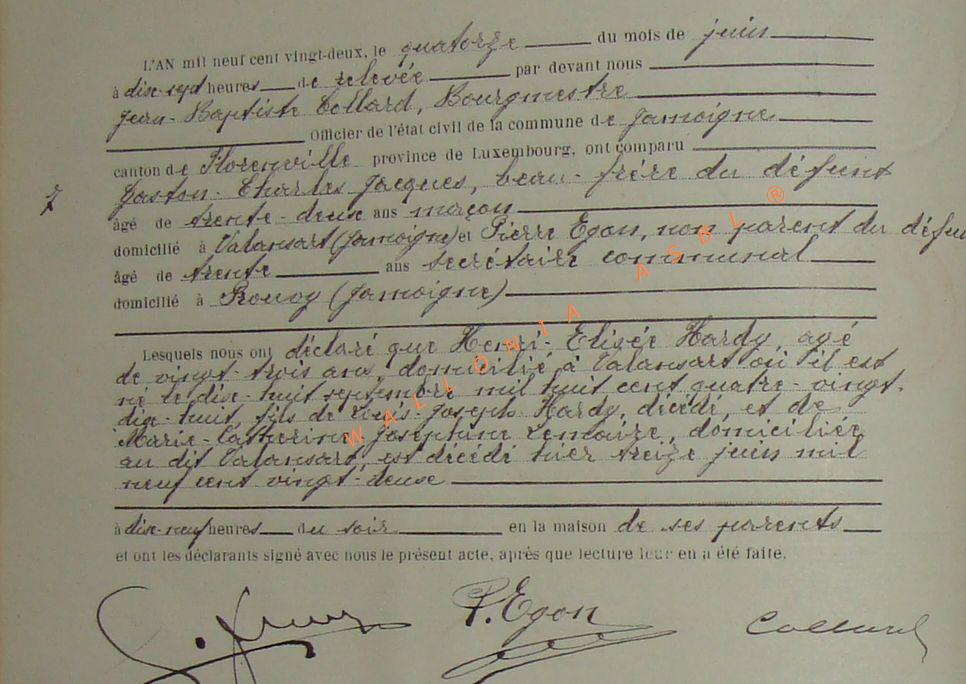 L'AN mil neuf cent vingt-deux, le quatorze du mois de juin
à dix-sept heures de relevée par devant nous
Jean-Baptiste Collard, Bourgmestre
Officier de l'état civil de la commune de Jamoigne
canton de Florenville province de Luxembourg, ont comparu
7 Gaston-Charles Jacques, beau-frère du défunt
âgé de trente-deux ans maçon
domicilié à Valansart (Jamoigne) et Pierre Egon, non parent du défu
âgé de trente ans secrétaire communal
domicilié à Prouvy (Jamoigne)
Lesquels nous ont déclaré que Henri-Elisée Hardy, agé
de vingt-trois ans, domicilié à Valansart où il est
né le dix-huit septembre mil huit cent quatre-vingt-
dix-huit, fils de Louis-Joseph Hardy, décédé, et de
Marie-Catherine Joséphine Lemaire, domiciliée
au dit Valansart, est décédé hier treize juin mil
neuf cent vingt-deux
à dix-neuf heures du soir en la maison de ses parents
et ont les déclarants signé avec nous le présent acte, après que lecture leur en a été faite.
P. Egon Collard
WALLONIA ASBL ®